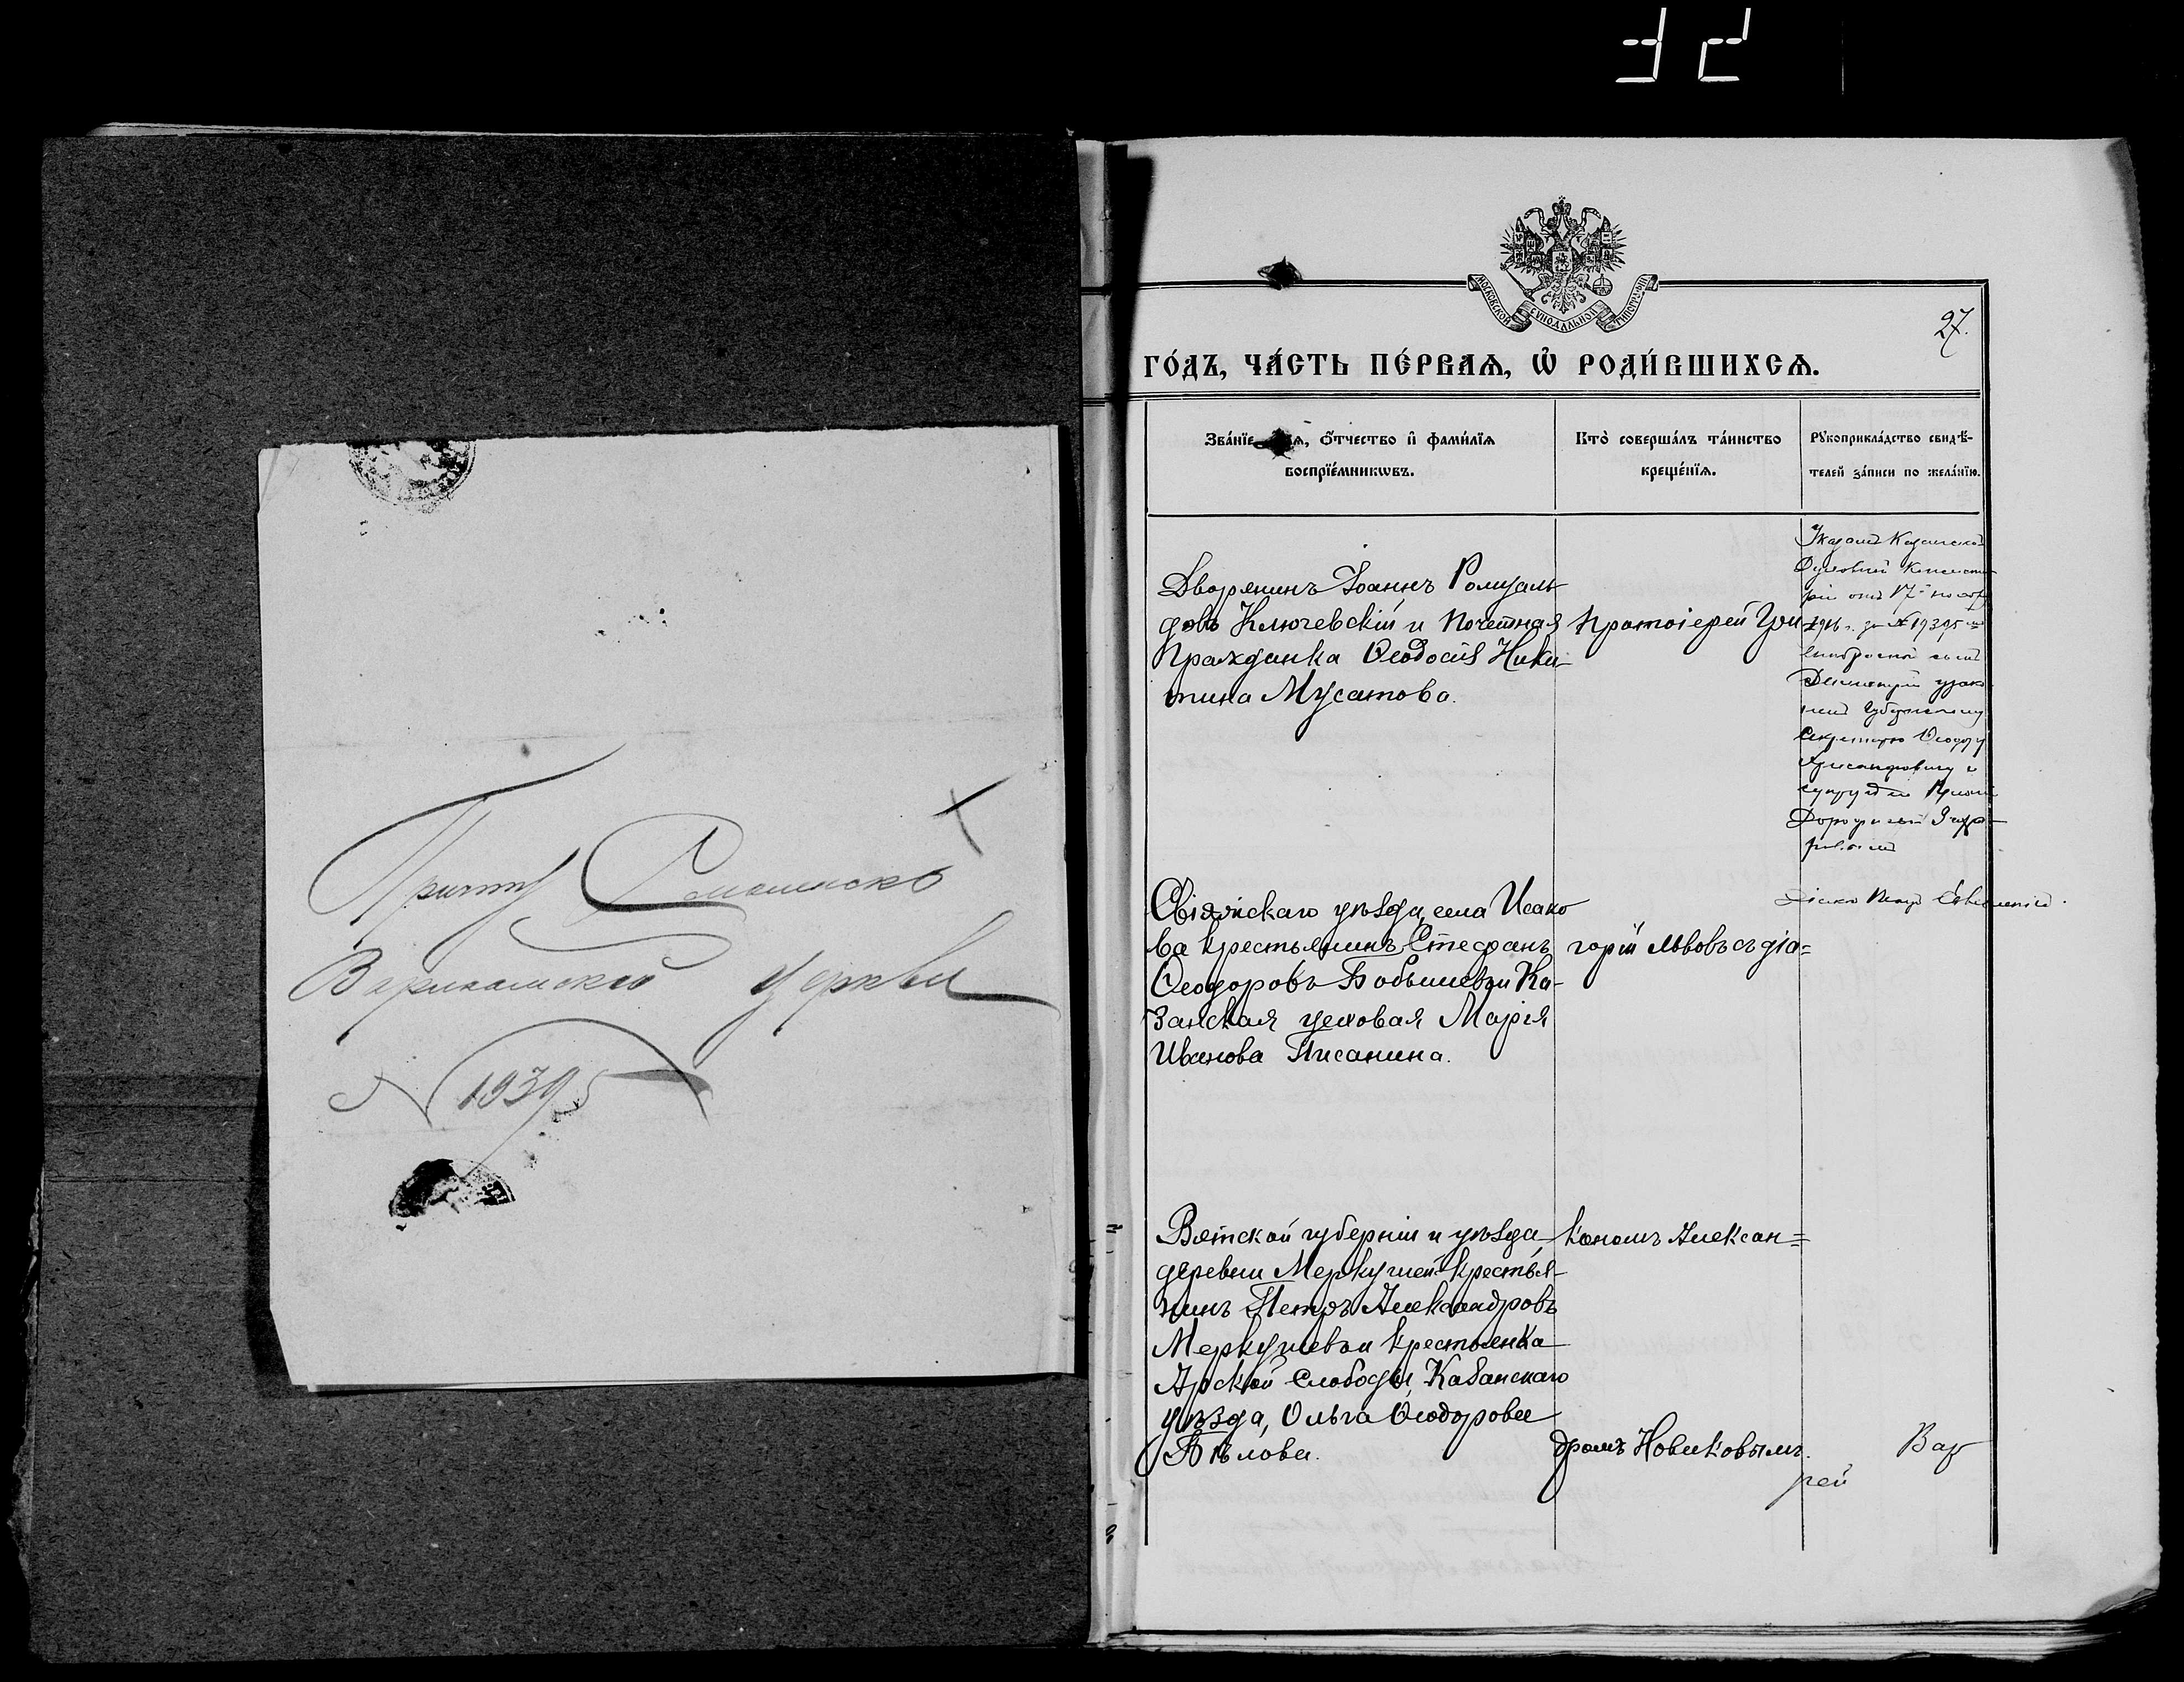 Причту Смоленско
Варламской церкви
N 19395
МОСКОВСКОЙ СѴНОДАЛЬНОЙ ТИПОГРАФІИ
27.
ГО́ДЪ, ЧА́СТЬ ПЕ́РВАѦ, Ѡ҆ РОДИ́ВШИХСѦ.
Зва́нїе, ѻ҆́тчество и҆ фами́лїѧ
воспрїе́мникѡвъ.
Кто̀ соверша́лъ та́инство
креще́нїѧ.
Рꙋкоприкла́дство свидѣ́-
телей за́писи по жела́нїю.
Дворянинъ Іоаннъ Ромуаль
довъ Ключевскій и почетная
гражданка Ѳеодосія Ники-
тина Мусатова.
Протоіерей Гри
Указомъ Казанской
Духовной Консисто
ріи отъ 17 нояб
1916 г. за № 19395
узако
Губернскому
Секретарю Ѳеодору
Александровичу и
супругѣ
Свіяжскаго уѣзда, села Исако
ва крестьянинъ Стефанъ
Ѳеодоровъ Бобышевъ и Ка-
занская цеховая Марія
Иванова Писанина.
горій Львовъ съ діа=
Вятской губерніи и уѣзда,
деревни Меркушей крестья-
нинъ Петръ Александровъ
Меркушевъ и крестьянка
Арской слободы, Казанскаго
уѣзда, Ольга Ѳеодорова
Бѣлова.
кономъ Алексан=
дромъ Новиковымъ.
рей
Вар